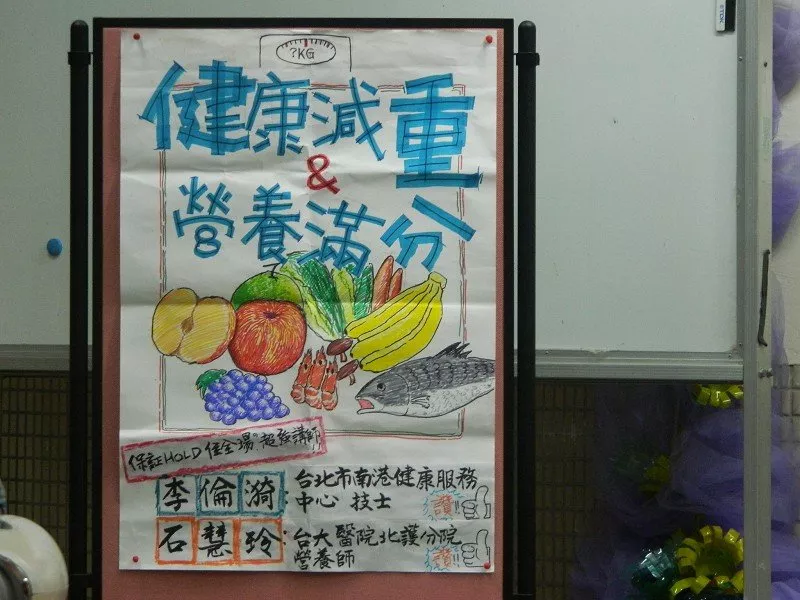 ?KG
健康減重
&
營養滿分
保証HOLD住全場"超強講師"
李倫漪:台北市南港健康服務
中心 技士 讚!!
石慧玲:台大醫院北護分院
營養師 讚!!